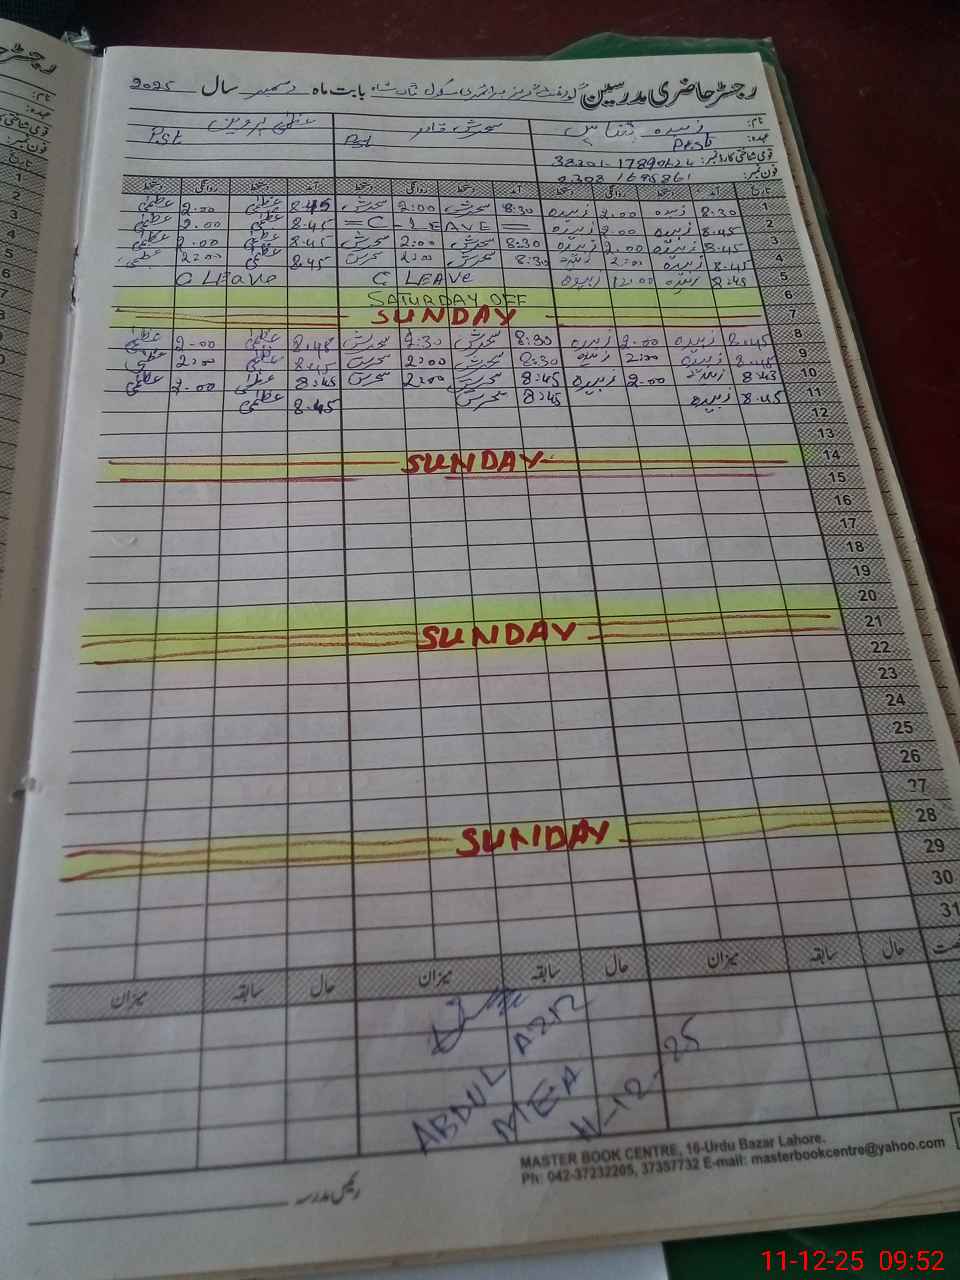 رجسٹر حاضری مدرسین گورنمنٹ گرلز پرائمری سکول بابت ماہ دسمبر سال 2025
نام: زبیدہ سحرش عظمیٰ پروین
عہدہ: PST PST
قومی شناختی کارڈ نمبر:
فون نمبر:
تاریخ آمد دستخط روانگی دستخط آمد دستخط روانگی دستخط آمد دستخط روانگی دستخط
1 8.30 زبیدہ 2.00 زبیدہ 8:30 سحرش 2:00 سحرش 8.45 عظمیٰ 2.00 عظمیٰ
2 8.45 زبیدہ 2.00 زبیدہ = C - LEAVE = 8.45 عظمیٰ 2.00 عظمیٰ
3 8.45 زبیدہ 2.00 زبیدہ 8:30 سحرش 2:00 سحرش 8.45 عظمیٰ 2.00 عظمیٰ
4 8.45 زبیدہ 2:00 زبیدہ 8:30 سحرش 2:00 سحرش 8.45 عظمیٰ 2:00 عظمیٰ
5 8:45 زبیدہ 12:00 زبیدہ C LEAVE C Leave
6 SATURDAY OFF
7 SUNDAY
8 8.45 زبیدہ 2.00 زبیدہ 8:30 سحرش 2:30 سحرش 8.45 عظمیٰ 2.00 عظمیٰ
9 8.45 زبیدہ 2:00 زبیدہ 8:30 سحرش 2:00 سحرش 8.45 عظمیٰ 2:00 عظمیٰ
10 8:45 زبیدہ 2.00 زبیدہ 8:45 سحرش 2:00 سحرش 8:45 عظمیٰ 2.00 عظمیٰ
11 8.45 زبیدہ 8:45 سحرش 8.45 عظمیٰ
12
13
14 SUNDAY
15
16
17
18
19
20
21 SUNDAY
22
23
24
25
26
27
28 SUNDAY
29
30
31
حال سابقہ میزان حال سابقہ میزان حال سابقہ میزان
ABDUL AZIZ
MEA
11-12-25
MASTER BOOK CENTRE, 16-Urdu Bazar Lahore.
Ph: 042-37232205, 37357732 E-mail: masterbookcentre@yahoo.com
رئیس مدرسہ
11-12-25 09:52